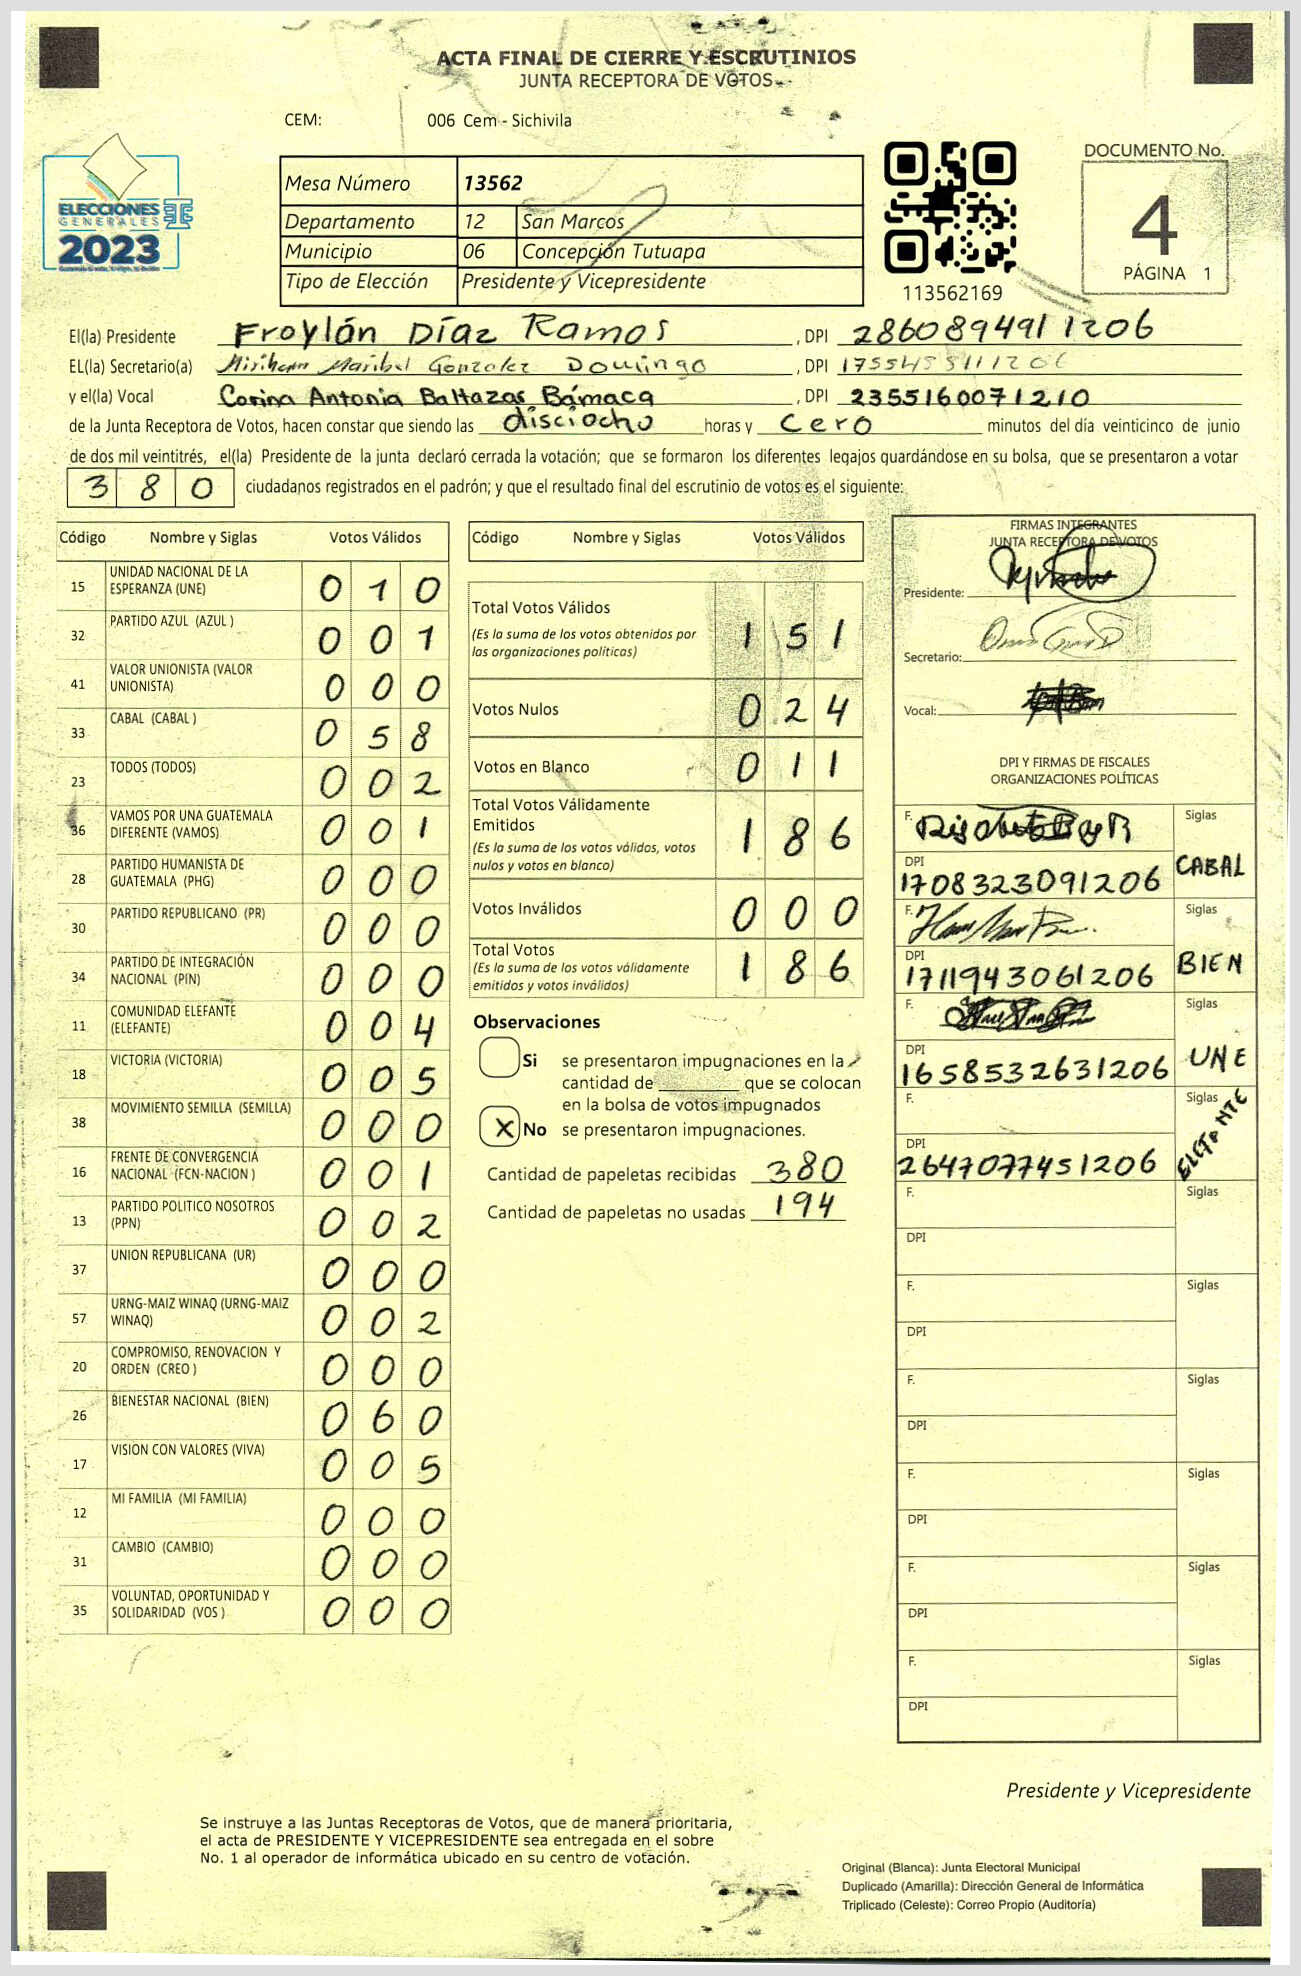 ACTA FINAL DE CIERRE Y ESCRUTINIOS
JUNTA RECEPTORA DE VOTOS
CEM: 006 Cem - Sichivila
ELECCIONES
GENERALES
2023
Mesa Número 13562
Departamento 12 San Marcos
Municipio 06 Concepción Tutuapa
Tipo de Elección Presidente y Vicepresidente
113562169
DOCUMENTO No.
4
PÁGINA 1
El(la) Presidente Froylán Díaz Ramos , DPI 2860894911206
EL(la) Secretario(a) Maribel Gonzalez Domingo , DPI
y el(la) Vocal Corina Antonia Baltazar Bámaca , DPI 2355160071210
de la Junta Receptora de Votos, hacen constar que siendo las disciocho horas y cero minutos del día veinticinco de junio
de dos mil veintitrés, el(la) Presidente de la junta declaró cerrada la votación; que se formaron los diferentes legajos guardándose en su bolsa, que se presentaron a votar
380 ciudadanos registrados en el padrón; y que el resultado final del escrutinio de votos es el siguiente:
Código Nombre y Siglas Votos Válidos
15 UNIDAD NACIONAL DE LA ESPERANZA (UNE) 0 1 0
32 PARTIDO AZUL (AZUL ) 0 0 1
41 VALOR UNIONISTA (VALOR UNIONISTA) 0 0 0
33 CABAL (CABAL ) 0 5 8
23 TODOS (TODOS) 0 0 2
36 VAMOS POR UNA GUATEMALA DIFERENTE (VAMOS) 0 0 1
28 PARTIDO HUMANISTA DE GUATEMALA (PHG) 0 0 0
30 PARTIDO REPUBLICANO (PR) 0 0 0
34 PARTIDO DE INTEGRACIÓN NACIONAL (PIN) 0 0 0
11 COMUNIDAD ELEFANTE (ELEFANTE) 0 0 4
18 VICTORIA (VICTORIA) 0 0 5
38 MOVIMIENTO SEMILLA (SEMILLA) 0 0 0
16 FRENTE DE CONVERGENCIA NACIONAL (FCN-NACION ) 0 0 1
13 PARTIDO POLITICO NOSOTROS (PPN) 0 0 2
37 UNION REPUBLICANA (UR) 0 0 0
57 URNG-MAIZ WINAQ (URNG-MAIZ WINAQ) 0 0 2
20 COMPROMISO, RENOVACION Y ORDEN (CREO ) 0 0 0
26 BIENESTAR NACIONAL (BIEN) 0 6 0
17 VISION CON VALORES (VIVA) 0 0 5
12 MI FAMILIA (MI FAMILIA) 0 0 0
31 CAMBIO (CAMBIO) 0 0 0
35 VOLUNTAD, OPORTUNIDAD Y SOLIDARIDAD (VOS ) 0 0 0
Código Nombre y Siglas Votos Válidos
Total Votos Válidos 1 5 1
(Es la suma de los votos obtenidos por
las organizaciones políticas)
Votos Nulos 0 2 4
Votos en Blanco 0 1 1
Total Votos Válidamente
Emitidos 1 8 6
(Es la suma de los votos válidos, votos
nulos y votos en blanco)
Votos Inválidos 0 0 0
Total Votos 1 8 6
(Es la suma de los votos válidamente
emitidos y votos inválidos)
Observaciones
Si se presentaron impugnaciones en la
cantidad de ________ que se colocan
en la bolsa de votos impugnados
X No se presentaron impugnaciones.
Cantidad de papeletas recibidas 380
Cantidad de papeletas no usadas 194
FIRMAS INTEGRANTES
JUNTA RECEPTORA DE VOTOS
Presidente:
Secretario:
Vocal:
DPI Y FIRMAS DE FISCALES
ORGANIZACIONES POLÍTICAS
F. Siglas
DPI CABAL
1708323091206
F. Siglas
DPI BIEN
1711943061206
F. Siglas
DPI UNE
1658532631206
F. Siglas
DPI
2647077451206
F. Siglas
DPI
F. Siglas
DPI
F. Siglas
DPI
F. Siglas
DPI
F. Siglas
DPI
F. Siglas
DPI
Presidente y Vicepresidente
Se instruye a las Juntas Receptoras de Votos, que de manera prioritaria,
el acta de PRESIDENTE Y VICEPRESIDENTE sea entregada en el sobre
No. 1 al operador de informática ubicado en su centro de votación.
Original (Blanca): Junta Electoral Municipal
Duplicado (Amarilla): Dirección General de Informática
Triplicado (Celeste): Correo Propio (Auditoría)